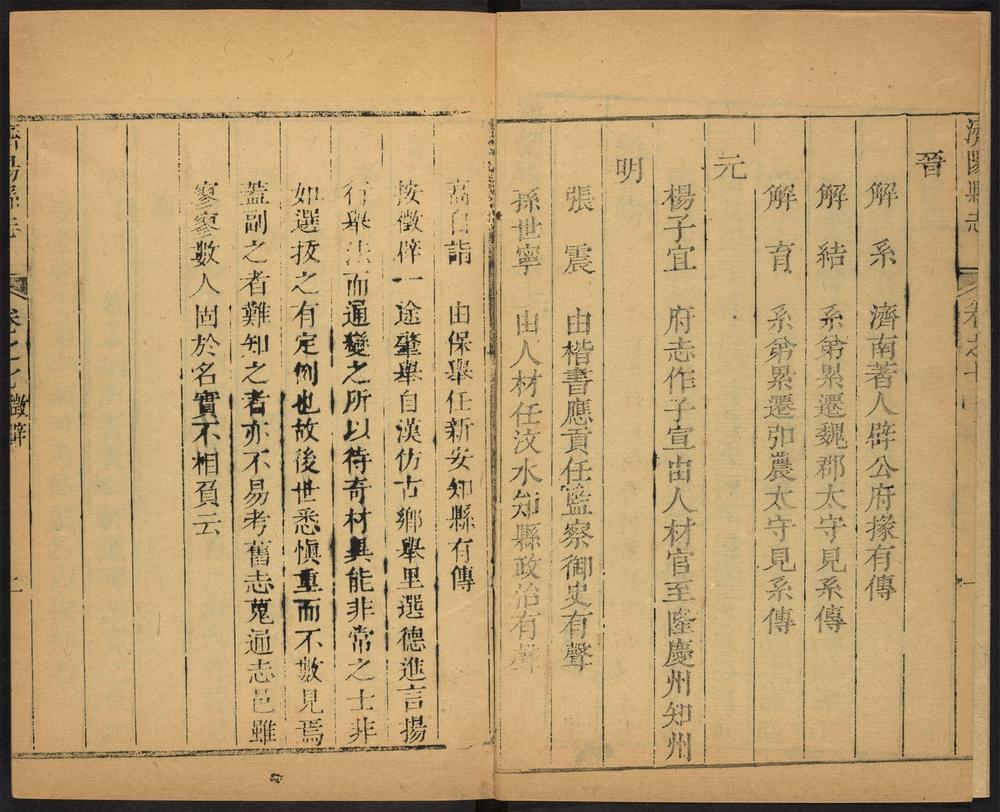 濟陽縣志
卷之七
一
晉
解系 濟南著人辟公府掾有傳
解結 系弟累遷魏郡太守見系傳
解育 系弟累遷弘農太守見系傳
元
楊子宜 府志作子宣由人材官至隆慶州知州
明
張震 由楷書應貢任監察御史有聲
孫世寧 由人材任汶水知縣政治有聲
高自詣 由保舉任新安知縣有傳
按徵辟一途肇舉自漢仿古鄉舉里選德進言揚
行舉法而通變之所以待奇材異能非常之士非
如選拔之有定例也故後世悉慎重而不數見焉
蓋副之者難知之者亦不易考舊志蒐通志邑雖
寥寥數人固於名實不相負云
濟陽縣志
卷之七 徵辟